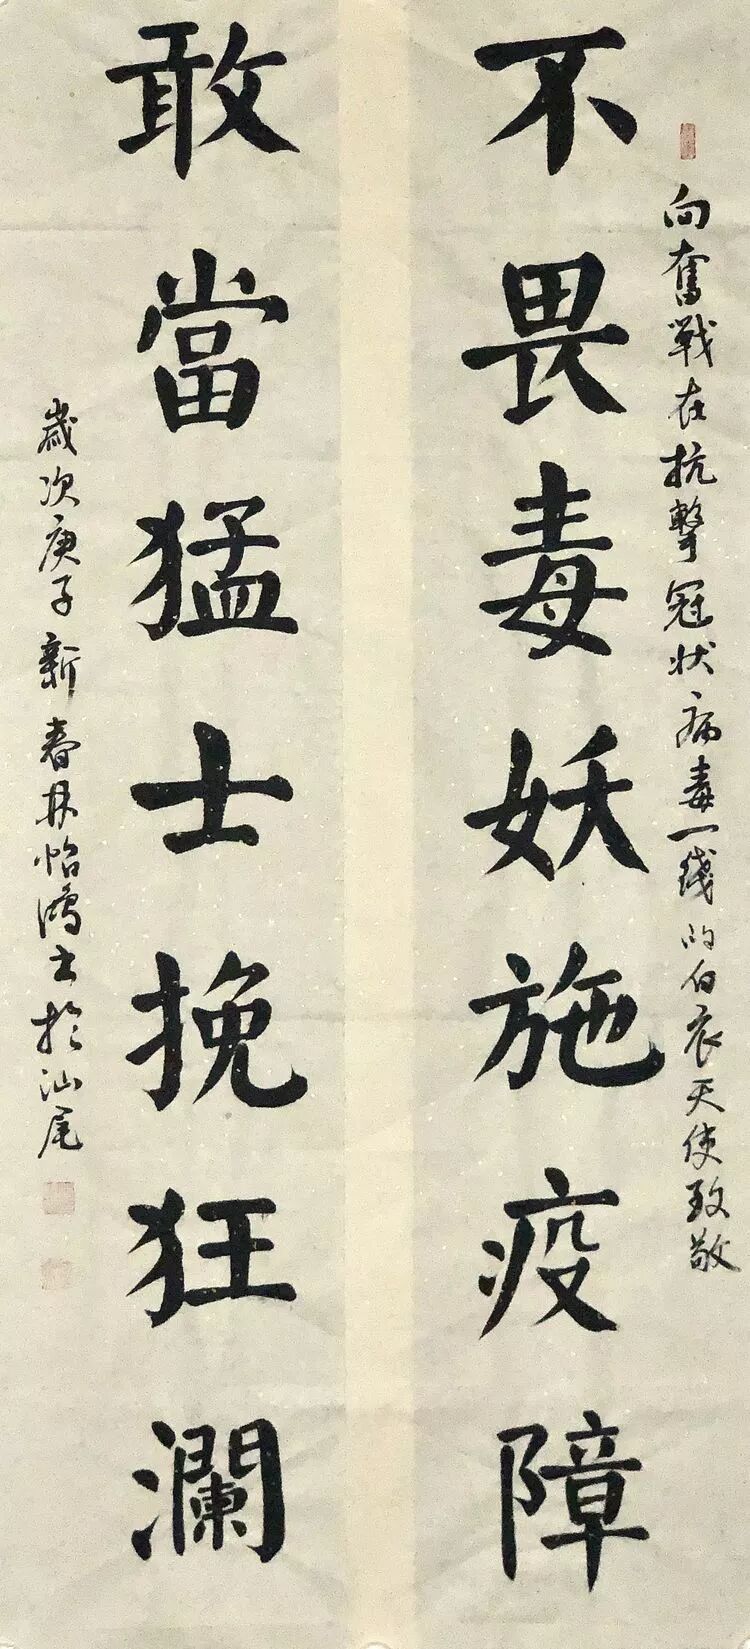 向奮戰在抗擊冠状病毒一綫的白衣天使致敬
不畏毒妖施疫障
敢當猛士挽狂瀾
歲次庚子新春林怡鴻書於汕尾